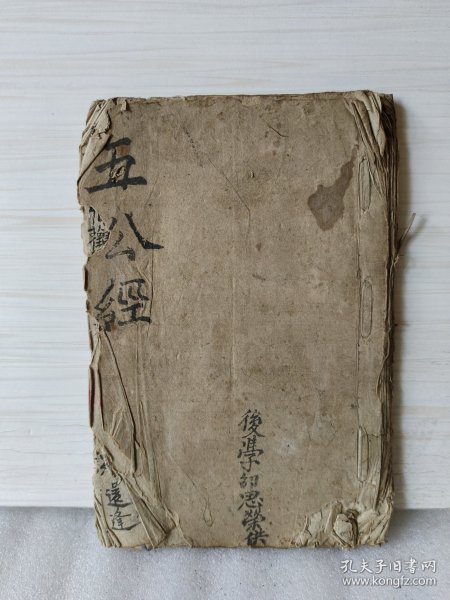 五公經
還逢
後學胡思榮供
孔夫子旧书网
www.kongfz.com